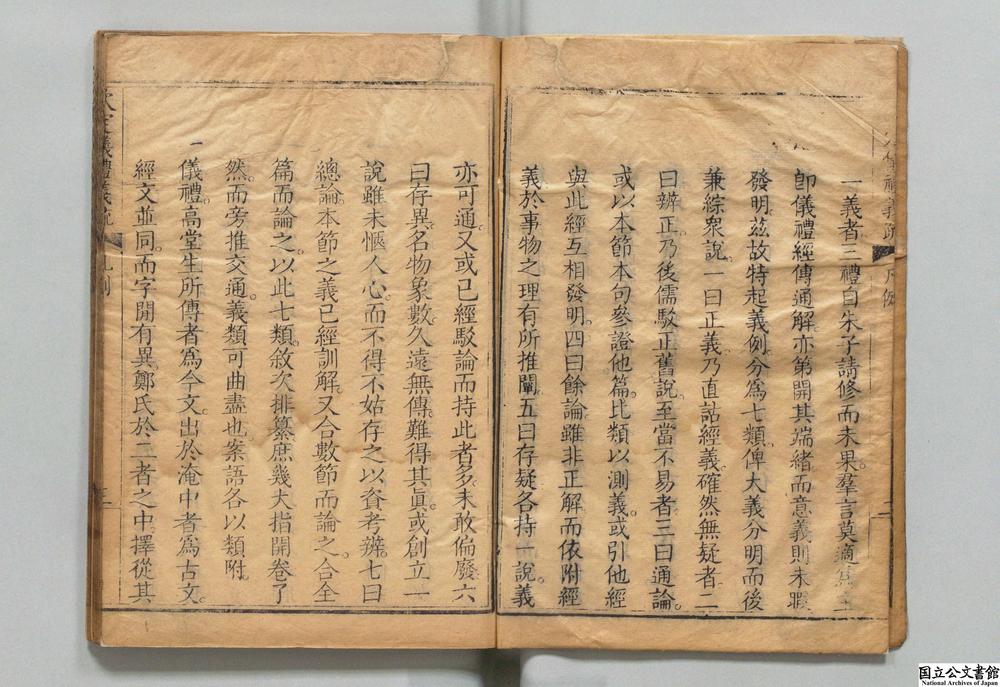 一義者三禮自朱子請修而未果羣言莫適爲主
即儀禮經傳通解亦第開其端緒而意義則未暇
發明茲故特起義例分爲七類俾大義分明而後
兼綜衆說一曰正義乃直詁經義確然無疑者二
曰辨正乃後儒駁正舊說至當不易者三曰通論
或以本節本句參證他篇比類以測義或引他經
與此經互相發明四曰餘論雖非正解而依附經
義於事物之理有所推闡五曰存疑各持一說義
亦可通又或已經駁論而持此者多未敢偏廢六
曰存異名物象數久遠無傳難得其眞或創立一
說雖未愜人心而不得不姑存之以資考辨七曰
總論本節之義已經訓解又合數節而論之合全
篇而論之以此七類敘次排纂庶幾大指開卷了
然而旁推交通義類可曲盡也案語各以類附
一儀禮高堂生所傳者爲今文出於淹中者爲古文
經文並同而字閒有異鄭氏於二者之中擇從其
儀禮義疏 凡例 三
禮義疏 凡例 二
国立公文書館
National Archives of Japan